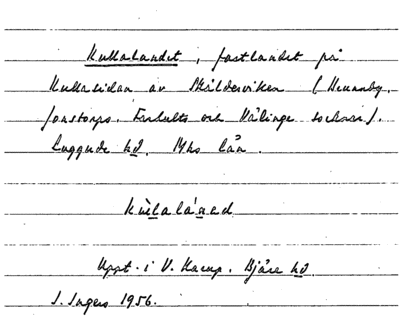 Kullalandet, fastlandet på
Kullasidan av Skälderviken (Brunnby,
Jonstorps, Farhults och Välinge socknar).
Luggude hd. Mhs län.
kùllalánad
Uppt. i V. Karup, Bjäre hd.
S. Ingers 1956.